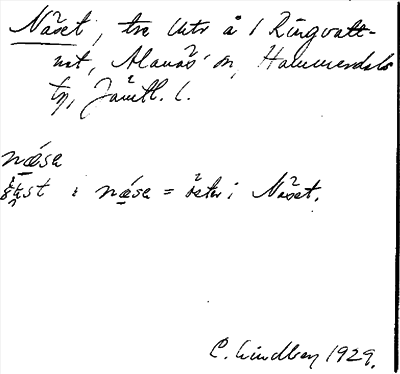 Näset, tre lhtr å 1 Ringvatt-
net, Alanäs sn, Hammerdals
tg, Jämtl. l.
næsa
i næsa = öster i Näset.
C. Lindberg 1929.